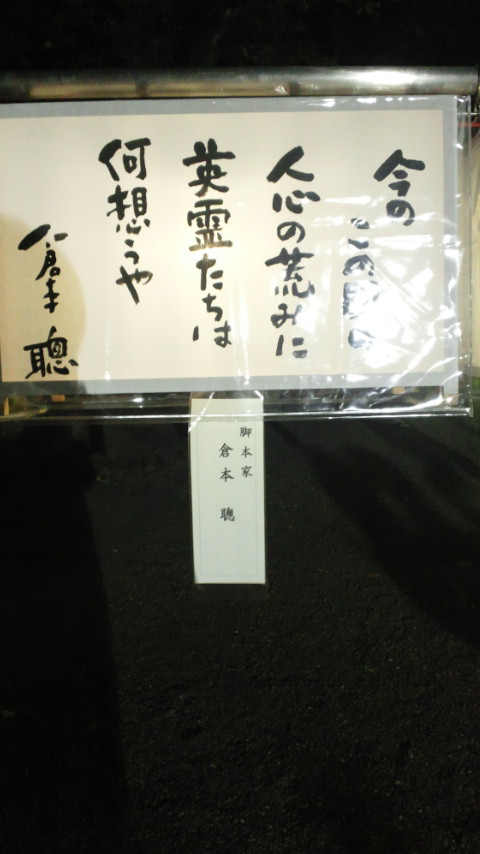 今の
この国の
人心の荒みに
英霊たちは
何想うや
倉本 聰
脚本家
倉本 聰